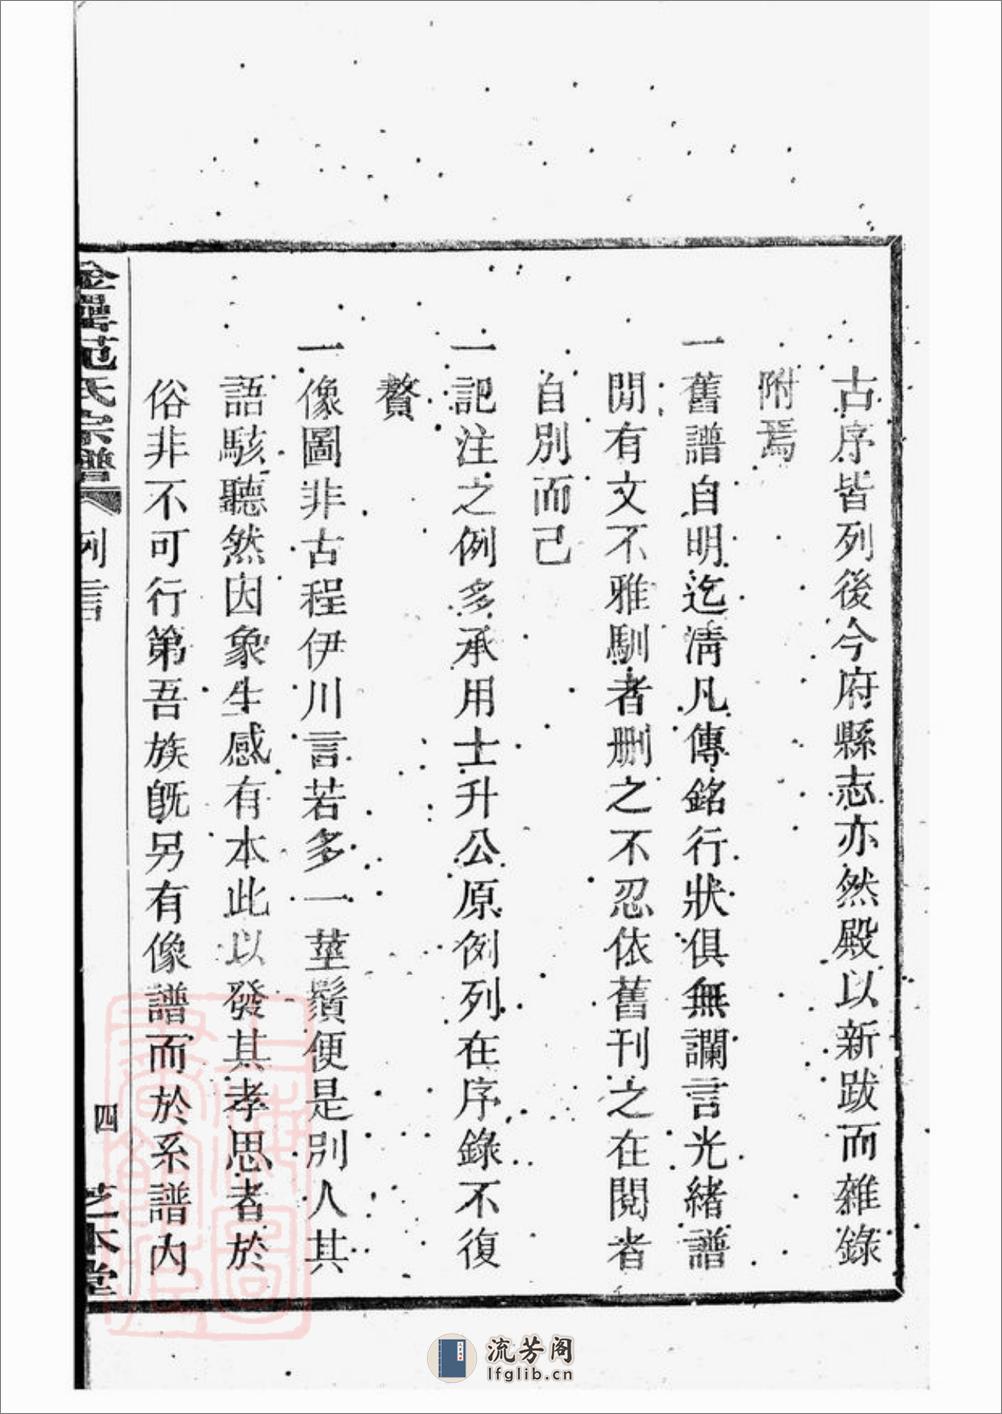 古序皆列後今府縣志亦然殿以新跋而雜錄
附焉
一舊譜自明迄清凡傳銘行狀俱無讕言光緒譜
閒有文不雅馴者删之不忍依舊刊之在閱者
自別而已
一記注之例多承用士升公原例列在序錄不復
贅
一像圖非古程伊川言若多一莖鬚便是別人其
語駭聽然因象生感有本此以發其孝思者於
俗非不可行第吾族旣另有像譜而於系譜內
范氏宗譜
例言
四
芝本堂
流芳阁
lfglib.cn